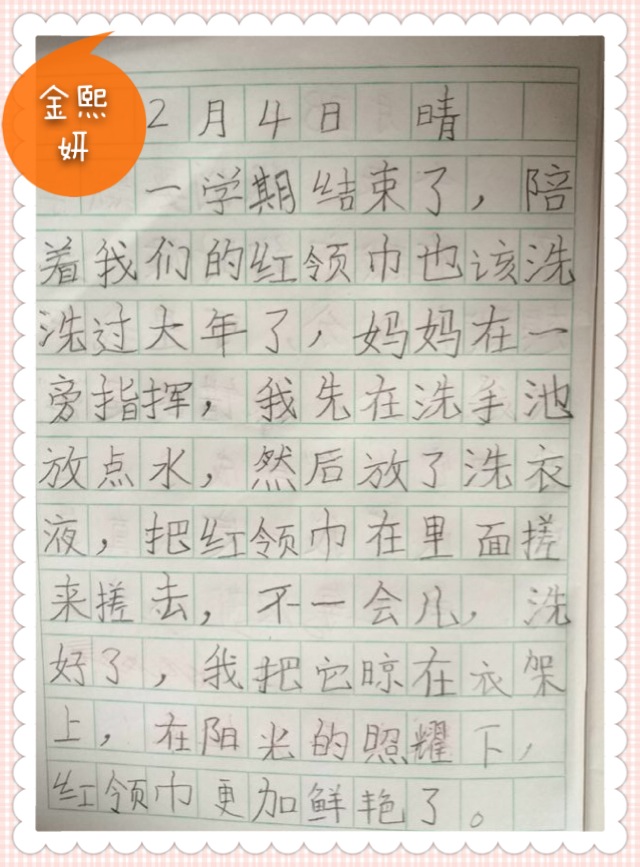 金熙
妍
2月4日 晴
一学期结束了，陪
着我们的红领巾也该洗
洗过大年了，妈妈在一
旁指挥，我先在洗手池
放点水，然后放了洗衣
液，把红领巾在里面搓
来搓去，不一会儿，洗
好了，我把它晾在衣架
上，在阳光的照耀下，
红领巾更加鲜艳了。